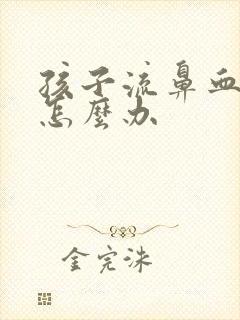 孩子流鼻血
怎麼办
金完洙